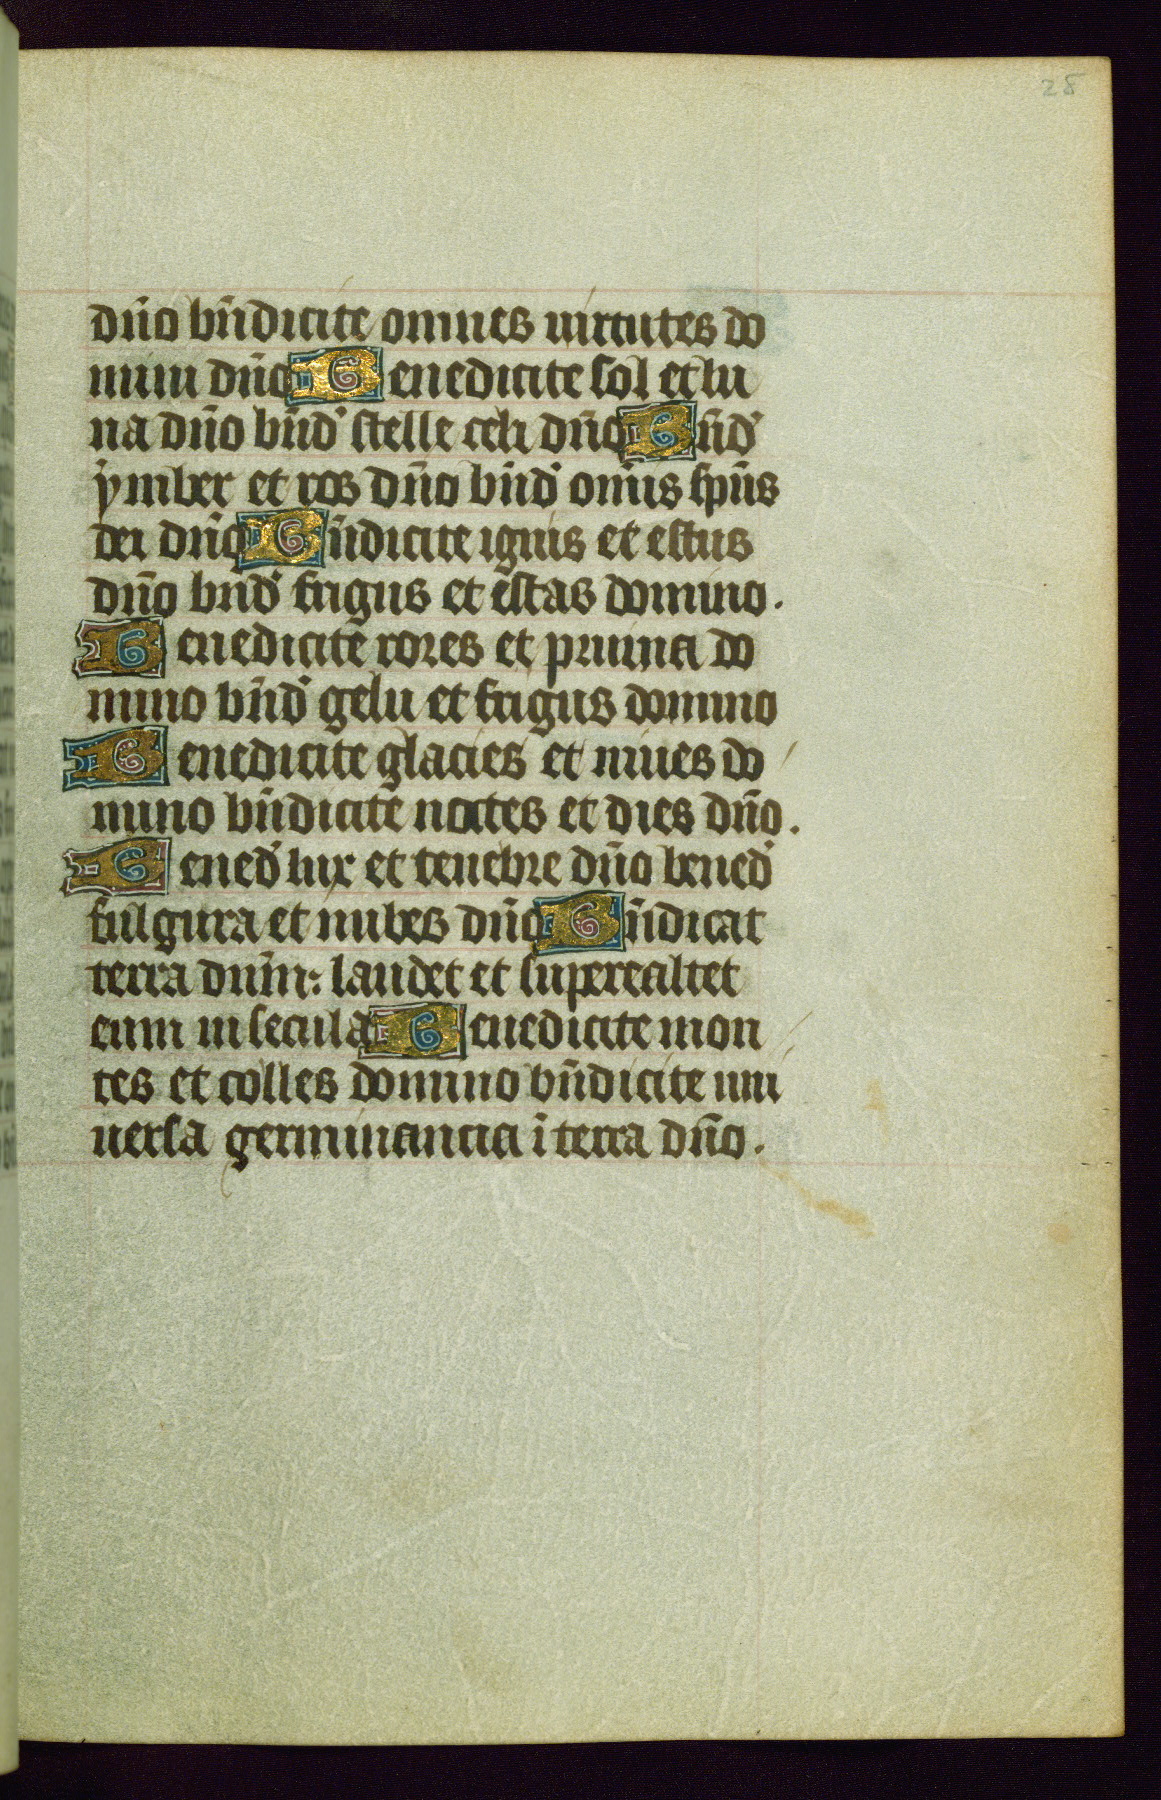 28
dño bñdicite omnes uirtutes do
mini dño Benedicite sol et lu
na dño bñd' stelle celi dño Bñd'
ymber et ros dño bñd' omīs spūs
dei dño Bñdicite ignis et estus
dño bñd' frigus et estas domino.
Benedicite rores et pruina do
mino bñd' gelu et frigus domino
Benedicite glacies et niues do
mino bñdicite noctes et dies dño.
Bened' lux et tenebre dño bened'
fulgura et nubes dño Bñdicat
terra dñm: laudet et superexaltet
eum in secula Benedicite mon
tes et colles domino bñdicite uni
uersa germinancia ī terra dño.